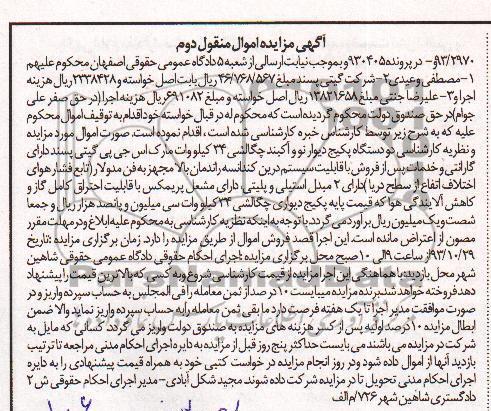 آگهی مزایده اموال منقول دوم
۹۳/۲۹۷۰و- در پرونده ۹۳۰۴۰۵و بموجب نیابت ارسالی از شعبه ۵ دادگاه عمومی حقوقی اصفهان محکوم علیهم
۱-مصطفی وعیدی ۲- شرکت گیتی پسند مبلغ ۴۶/۱۶۸/۵۶۷ ریال بابت اصل خواسته و مبلغ ۲۳۳۸۴۲۸ ریال هزینه
اجرا و ۳- علیرضا جنتی مبلغ ۱۳۸۲۱۶۵۸ ریال اصل خواسته و مبلغ ۶۹۱۰۸۲ ریال هزینه اجرا (در حق صفر علی
جوام) در حق صندوق دولت محکوم گردیده است که محکوم له در قبال خواسته خود اقدام به توقیف اموال محکوم
علیه که به شرح زیر توسط کارشناس خبره کارشناسی شده است، اقدام نموده است. صورت اموال مورد مزایده
و نظریه کارشناسی دو دستگاه پکیج دیوار نو و آکبند چگالشی ۲۴ کیلو وات مارک اس جی پی گیتی پسند دارای
گارانتی و خدمات پس از فروش با قابلیت سیستم درین کندانسه راندمان بالا مجهز به فن مدولار (تابع فشار هوای
اختلاف اتفاع از سطح دریا) دارای ۲ مبدل استیلی و پلیتی، دارای مشعل پریمکس با قابلیت احتراق کامل گاز و
کاهش آلایندگی هوا که قیمت پایه پکیج دیواری چگالشی ۲۴ کیلو وات سی میلیون و پانصد هزار ریال و جمعا
شصت و یک میلیون ریال برآورد می گردد. با توجه به اینکه نظریه کارشناسی به محکوم علیه ابلاغ و در مهلت مقرر
مصون از اعتراض مانده است. این اجرا قصد فروش اموال از طریق مزایده را دارد. زمان برگزاری مزایده :تاریخ
۹۳/۱۰/۲۹ از ساعت ۹ الی ۱۰ صبح محل برگزاری مزایده :اجرای احکام حقوقی دادگاه عمومی حقوقی شاهین
شهر محل بازدید با هماهنگی این اجرا مزایده از قیمت کارشناسی شروع و به کسی که بالاترین قیمت را پیشنهاد
دهد فروخته خواهد شد. برنده مزایده میبایست ۱۰ درصد از ثمن معامله را فی المجلس به حساب سپرده واریز و در
صورت موافقت مدیر اجرا تا یک هفته فرصت دارد مابقی ثمن معامله را به حساب سپرده واریز نماید والا ضمن
ابطال مزایده ۱۰ درصد اولیه پس از کسر هزینه های مزایده به صندوق دولت واریز می گردد. کسانی که مایل به
شرکت در مزایده می باشند می بایست حداکثر پنج روز قبل از مزایده به دایره اجرای احکام مدنی مراجعه تا ترتیب
بازدید آنها از اموال داده شود و در روز انجام مزایده در خواست کتبی خود به همراه قیمت پیشنهادی را به دایره
اجرای احکام مدنی تحویل تا در مزایده شرکت داده شوند. مجید شکل آبادی- مدیر اجرای احکام حقوقی ش ۲
دادگستری شاهین شهر ۷۲۶/م الف